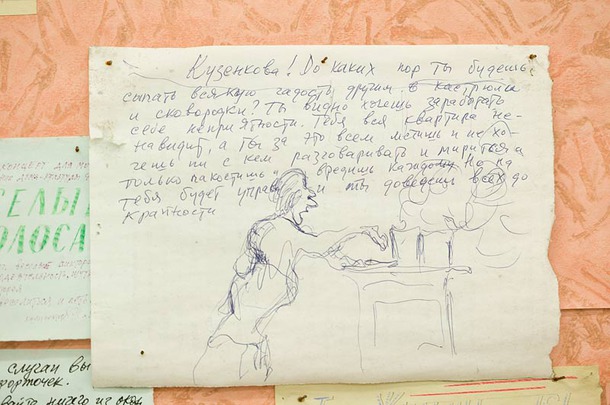 Кузенкова! До каких пор ты будешь
сыпать всякую гадость другим в кастрюли
и сковородки? Ты видно хочешь заработать
себе неприятности. Тебя вся квартира не-
навидит, а ты за это всем мстишь и не хо-
чешь ни с кем разговаривать и мириться а
только пакостишь и вредишь каждому Но на
тебя будет управа и ты доведешь всех до
крайности
концерт для
СЕЛЫЕ
ОЛОСА
случаи вы
форточек.
ничего из окон